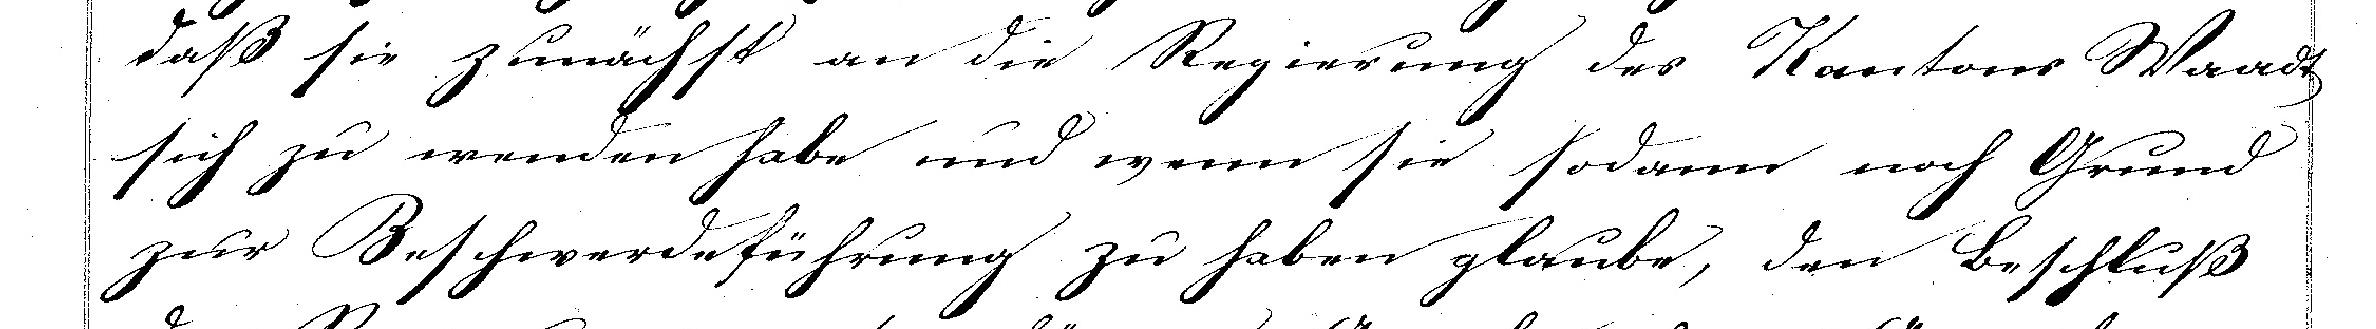 daß sie zunächst an die Regierung des Kantons Waadt
sich zu wenden habe und wenn sie sodann noch Grund
zur Beschwerdeführung zu haben glaube, den Beschluß